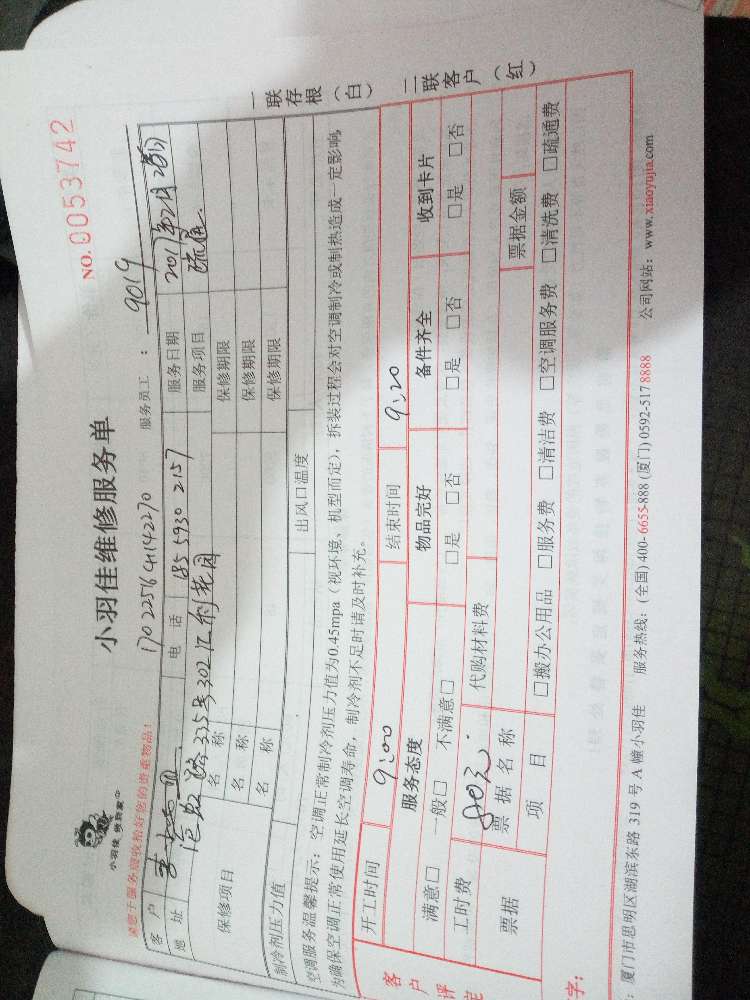 小羽佳 做到家中
小羽佳维修服务单
NO. 0053742
请您于服务前收拾好您的贵重物品！
17022564142270
服务员工： 9019
客户
电话 185 5930 2157
服务日期 2017年2月26日
地址 路335号302汇怡花园
服务项目 疏通
保修项目
名称
保修期限
名称
保修期限
名称
保修期限
制冷剂压力值
出风口温度
空调服务温馨提示：空调正常制冷剂压力值为0.45mpa（视环境、机型而定），拆装过程会对空调制冷或制热造成一定影响，
为确保空调正常使用延长空调寿命，制冷剂不足时请及时补充。
一联存根（白）
二联客户（红）
客户评定
开工时间 9:00 结束时间 9:20
服务态度 物品完好 备件齐全 收到卡片
满意□ 一般□ 不满意□ □是 □否 □是 □否 □是 □否
工时费 80元. 代购材料费
票据 票据名称 票据金额
项目 □搬办公用品 □服务费 □清洁费 □空调服务费 □清洗费 □疏通费
字：
：厦门市思明区湖滨东路 319 号 A 幢小羽佳 服务热线：(全国) 400-6655-888 (厦门) 0592-5178888 公司网站：www.xiaoyujia.com